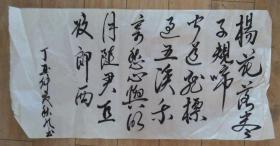 楊花落盡
子規啼
聞道龍標
過五溪我
寄愁心與明
月隨君直
夜郎西
丁亥
書